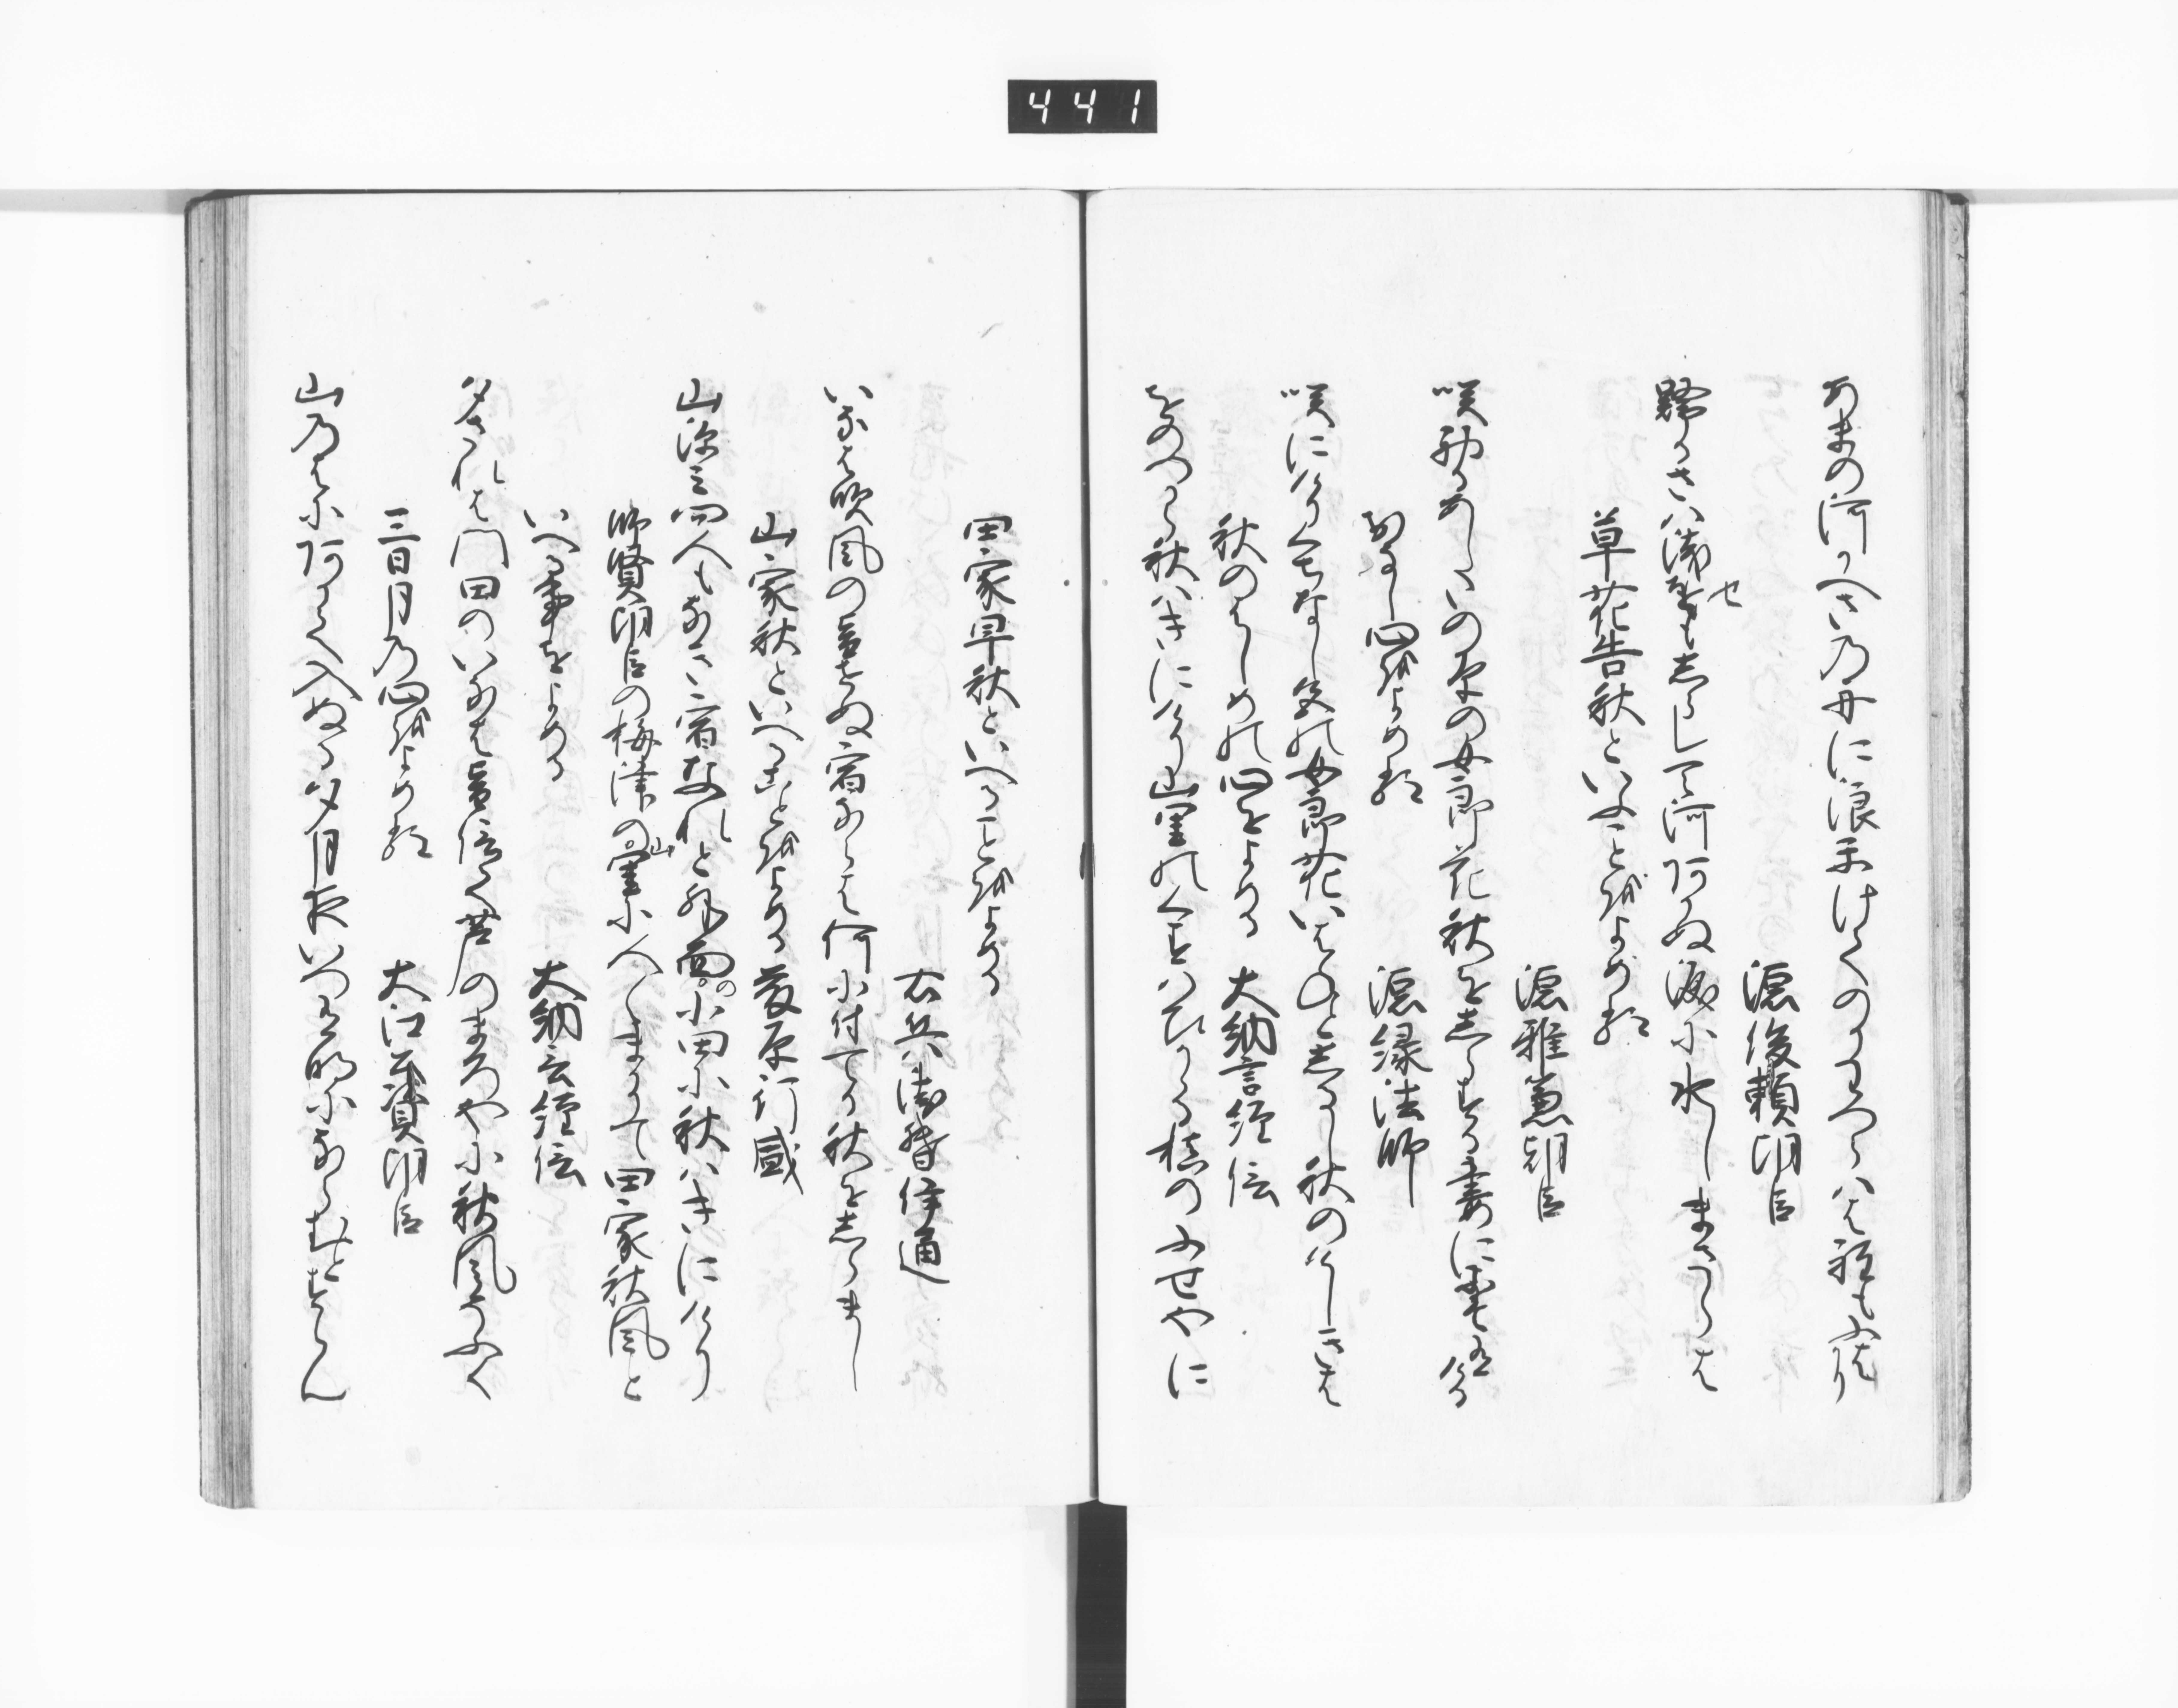 441
あまの河かへさの舟に浪かけよのりわつらはゝ程もふはかり
源俊頼朝臣
歸るさは浅せもしらし天河あかぬ涙に水しまさらは
草花告秋といふことをよめる
源雅兼朝臣
咲初るあしたの原の女郎花秋をしらする妻にそ有ける
おなし心をよめる　源縁法師
咲にけりくちなし色の女郎花いはねとしるし秋のけしきは
秋のはしめの心をよめる　大納言経信
をのつから秋はきにけり山里のくすはひかゝる槙のふせやに
田家早秋といへることをよめる
右兵衛督伊通
いなは吹風の音せぬ宿ならは何に付てか秋をしらまし
山家秋といへることをよめる　藤原行盛
山深み問人もなき宿なれと外面の小田に秋はきにけり
師賢朝臣の梅津の山里に人〻まかりて田家秋風と
いへる事をよめる　大納言経信
夕されは門田のいなは音信て芦のまろやに秋風そふく
三日月の心をよめる　大江公資朝臣
山のはにあかす入ぬる夕月夜いつ有明にならむとすらん